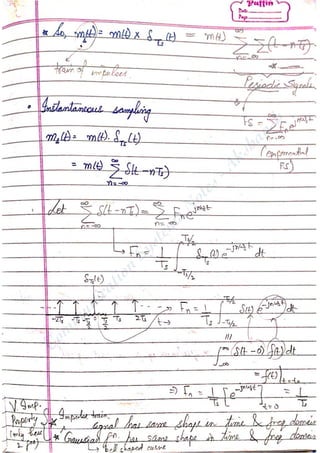 Puffin
Date
Page
* So, m_s(t) = m(t) × δ_Ts(t) = m(t) ∞ Σ n=-∞ δ(t - nTs)
train of impulses.
Periodic Signal
FS = ∞ Σ n=-∞ F_n e^jnωst
(exponential FS)
• Instantaneous sampling
m_s(t) = m(t). δ_Ts(t)
= m(t) ∞ Σ n=-∞ δ(t - nTs)
. Let ∞ Σ n=-∞ δ(t - nTs) = ∞ Σ n=-∞ F_n e^jnωst
→ F_n = 1/Ts ∫_-Ts/2^Ts/2 δ_Ts(t) e^-jnωst dt
δ_Ts(t)
-2Ts -Ts -Ts/2 Ts/2 Ts 2Ts t→
F_n = 1/Ts ∫_-Ts/2^Ts/2 δ(t) e^-jnωst dt
∫_-∞^∞ δ(t - 0) f(t) dt
= f(t)|t=to
⇒ F_n = 1/Ts [e^-jnωst]t=0 = 1/Ts
V. Imp.
Property
(only these 2 fns)
* Impulse train signal has same shape in time & freq domain
* Gaussian fn. has same shape in time & freq domain
→ bell shaped curve